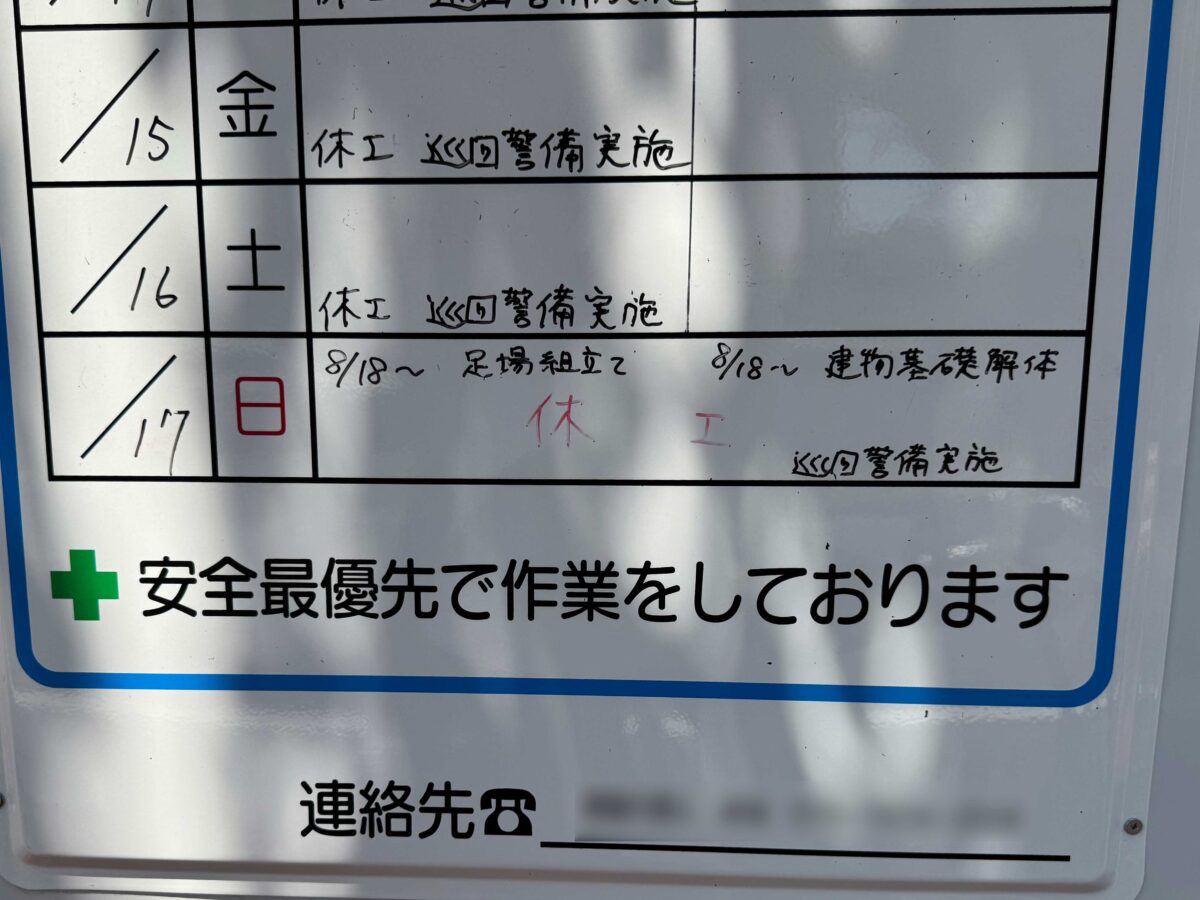 休工 巡回警備実施
/15 金 休工 巡回警備実施
/16 土 休工 巡回警備実施
8/18～ 足場組立て 8/18～ 建物基礎解体
/17 日 休 工
巡回警備実施
安全最優先で作業をしております
連絡先☎